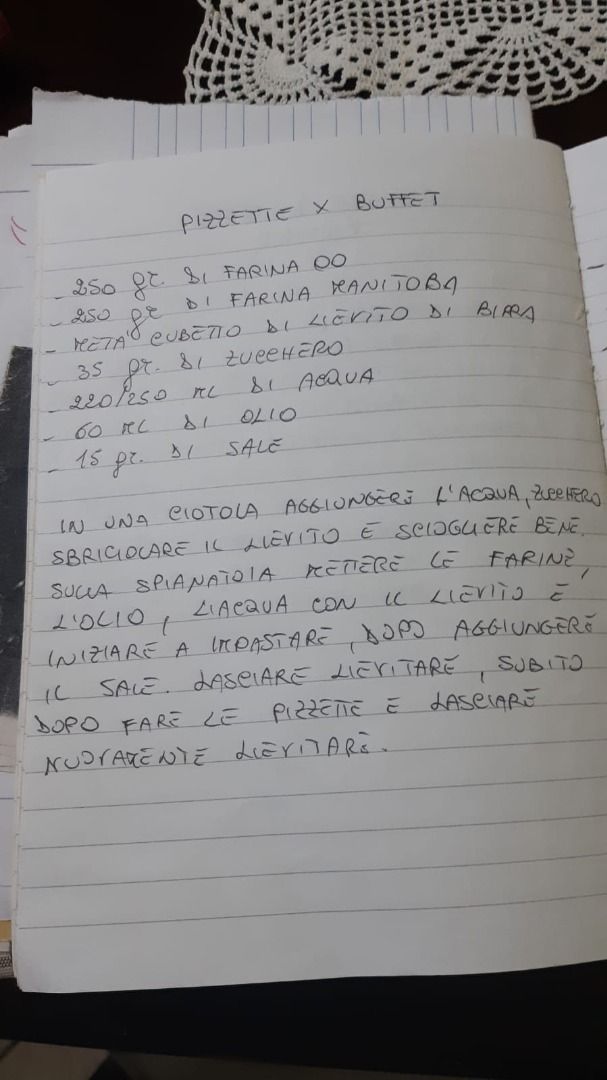 PIZZETTE X BUFFET
- 250 gr. DI FARINA 00
- 250 gr DI FARINA MANITOBA
- META' CUBETTO DI LIEVITO DI BIRRA
- 35 gr. DI ZUCCHERO
- 220/250 ML DI ACQUA
- 60 ML DI OLIO
- 15 gr. DI SALE
IN UNA CIOTOLA AGGIUNGERE L'ACQUA, ZUCCHERO
SBRICIOLARE IL LIEVITO E SCIOGLIERE BENE.
SULLA SPIANATOIA METTERE LE FARINE,
L'OLIO, L'ACQUA CON IL LIEVITO E
INIZIARE A IMPASTARE, DOPO AGGIUNGERE
IL SALE. LASCIARE LIEVITARE, SUBITO
DOPO FARE LE PIZZETTE E LASCIARE
NUOVAMENTE LIEVITARE.